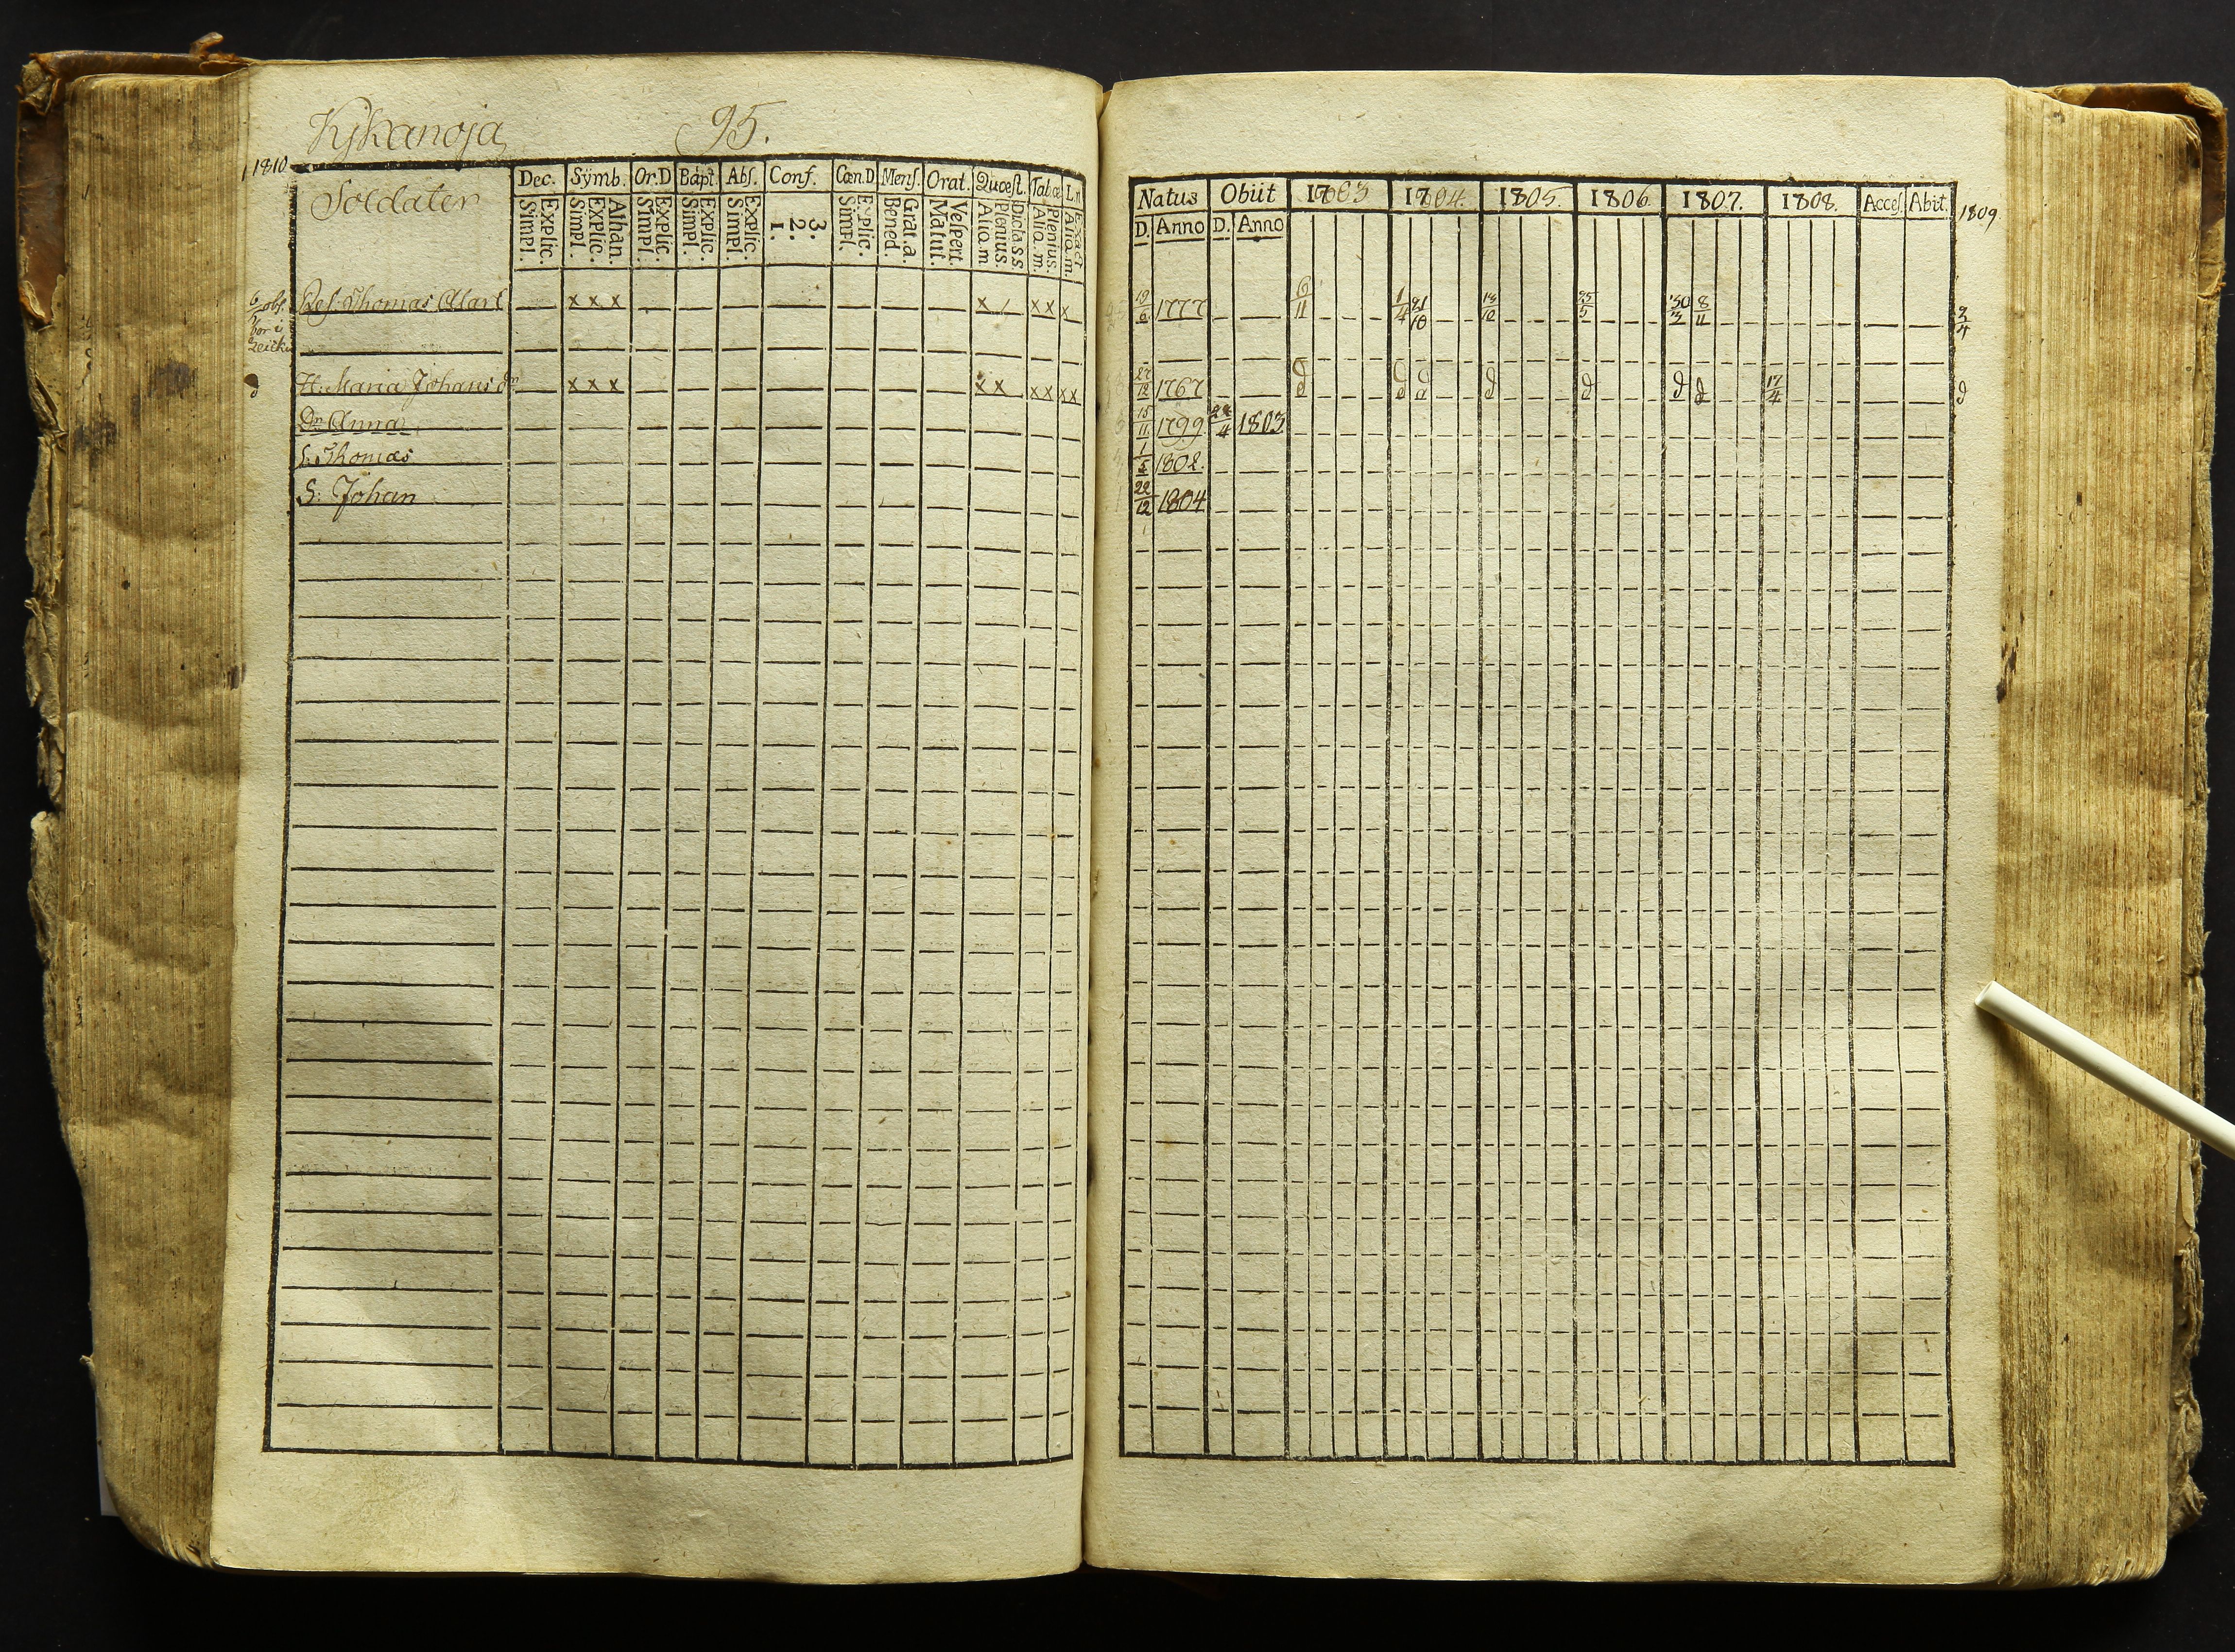 Kykanoja 95.
1810
Soldater
Dec. Sÿmb. Or.D Bapt. Abs. Conf. Cœn.D Mens. Orat. Quœst. Tabœ L.n
Explic. Simpl. Athan. Explic. Simpl. Explic. Simpl. Explic. Simpl. Explic. Simpl. 3. 2. 1. Explic. Simpl. Grat.a Bened. Vespert. Matut. Dicta SS Plenius. Aliq.m. Plenius. Aliq.m. Exact Aliq.m.
6 obs. Ref. Thomas Alart x x x x / x x x
bor i
H. Maria Johansdr x x x x x x x x x
Dr Anna
S. Thomas
S: Johan
Natus Obiit 1803 1804. 1805. 1806. 1807. 1808. Acces. Abit. 1809
D. Anno D. Anno
19/6 1777 6/11 1/4 21/10 13/10 25/5 30/3 8/11 3/4
27/12 1767 d d d d d d d d d 17/4 d
15/11 1799 24/4 1803
1/5 1802.
22/12 1804